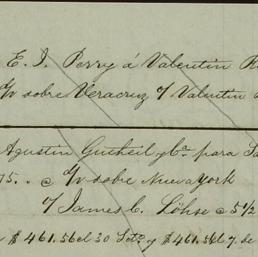 E. I. Perry á Valentin
G/v sobre Veracruz y/ Valentin
Agustin Gutheil y Ca. para
75.. @ G/v sobre Nueva York
y/ James C. Löhse @ 5 1/2
$461.56 el 30 Sete. y $461.56 el 7. de